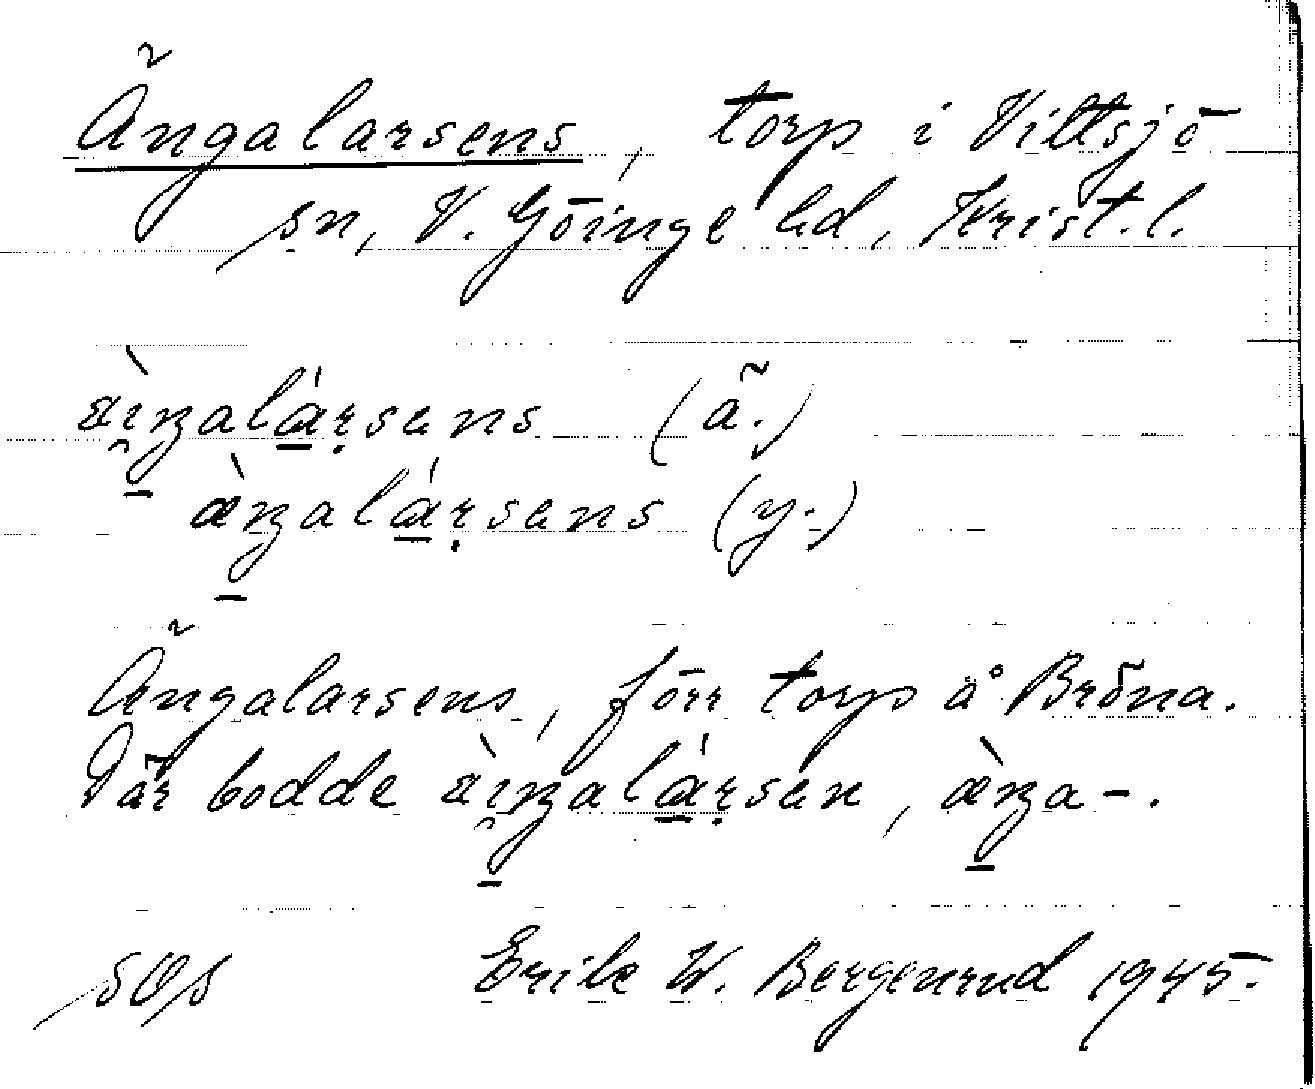 Ängalarsens, torp i Vittsjö
sn, V. Göinge hd, Krist.l.
æ̀i̯ŋalá̱ṛsens (ä.)
æ̀ŋalá̱ṛsens (y.)
Ängalarsens, förr torp å Bröna.
Där bodde æ̀i̯ŋalá̱ṛsen, æ̀ŋa-.
SOS Erik W. Bergenrud 1945.